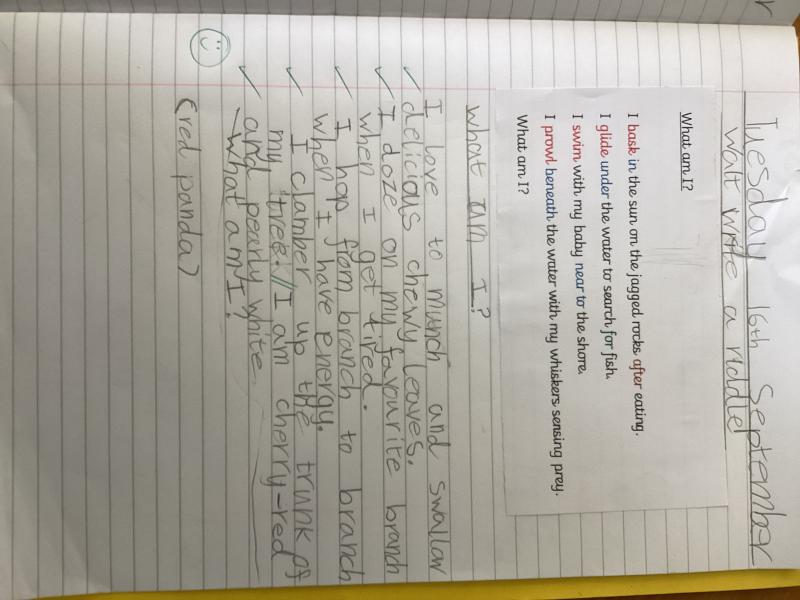 Tuesday 16th September
Walt write a riddle
What am I?
I bask in the sun on the jagged rocks after eating.
I glide under the water to search for fish.
I swim with my baby near to the shore.
I prowl beneath the water with my whiskers sensing prey.
What am I?
What am I?
I love to munch and swallow
delicious chewy leaves.
I doze on my favourite branch
when I get tired.
I hop from branch to branch
when I have energy.
I clamber up the trunk of
my tree. // I am cherry-red
and pearly white.
What am I?
(red panda)